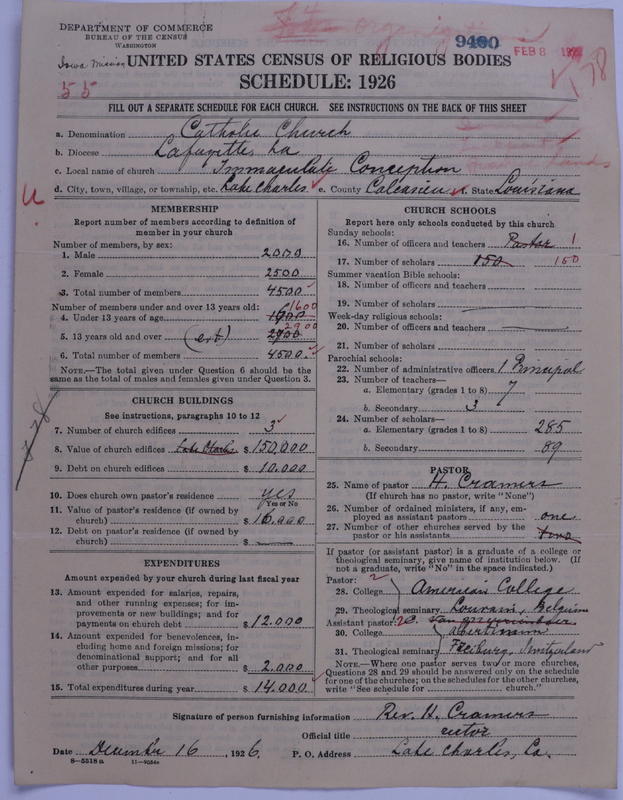 DEPARTMENT OF COMMERCE
BUREAU OF THE CENSUS
WASHINGTON
9400
FEB 8
178
Iowa Mission
55
UNITED STATES CENSUS OF RELIGIOUS BODIES
SCHEDULE: 1926
FILL OUT A SEPARATE SCHEDULE FOR EACH CHURCH. SEE INSTRUCTIONS ON THE BACK OF THIS SHEET
a. Denomination Catholic Church
b. Diocese Lafayette La
c. Local name of church Immaculate Conception
d. City, town, village, or township, etc. Lake Charles e. County Calcasieu f. State Louisiana
MEMBERSHIP
Report number of members according to definition of member in your church
Number of members, by sex:
1. Male 2000
2. Female 2500
3. Total number of members 4500
Number of members under and over 13 years old:
4. Under 13 years of age 1600
5. 13 years old and over (est) 2900
6. Total number of members 4500
NOTE.—The total given under Question 6 should be the
same as the total of males and females given under Question 3.
CHURCH BUILDINGS
See instructions, paragraphs 10 to 12
7. Number of church edifices 3
8. Value of church edifices Lake Charles $ 150,000
9. Debt on church edifices $ 10.000
10. Does church own pastor's residence yes
Yes or No
11. Value of pastor's residence (if owned by
church) $ 16.000
12. Debt on pastor's residence (if owned by
church) $
EXPENDITURES
Amount expended by your church during last fiscal year
13. Amount expended for salaries, repairs,
and other running expenses; for im-
provements or new buildings; and for
payments on church debt $ 12.000
14. Amount expended for benevolences, in-
cluding home and foreign missions; for
denominational support; and for all
other purposes $ 2.000
15. Total expenditures during year $ 14.000
CHURCH SCHOOLS
Report here only schools conducted by this church
Sunday schools:
16. Number of officers and teachers Pastor 1
17. Number of scholars 150 150
Summer vacation Bible schools:
18. Number of officers and teachers
19. Number of scholars
Week-day religious schools:
20. Number of officers and teachers
21. Number of scholars
Parochial schools:
22. Number of administrative officers 1 Principal
23. Number of teachers—
a. Elementary (grades 1 to 8) 7
b. Secondary 3
24. Number of scholars—
a. Elementary (grades 1 to 8) 285
b. Secondary 89
PASTOR
25. Name of pastor H. Cramers
(If church has no pastor, write "None")
26. Number of ordained ministers, if any, em-
ployed as assistant pastors one
27. Number of other churches served by the
pastor or his assistants two
If pastor (or assistant pastor) is a graduate of a college or
theological seminary, give name of institution below. (If
not a graduate, write "No" in the space indicated.)
Pastor: 2
28. College American College
29. Theological seminary Louvain, Belgium
Assistant pastor:
30. College
31. Theological seminary Freiburg, Switzerland
NOTE.—Where one pastor serves two or more churches,
Questions 28 and 29 should be answered only on the schedule
for one of the churches; on the schedules for the other churches,
write "See schedule for church."
Signature of person furnishing information Rev. H. Cramers
Official title rector
Date December 16, 1926. P. O. Address Lake Charles, La.
8—5518 a 11—9054a